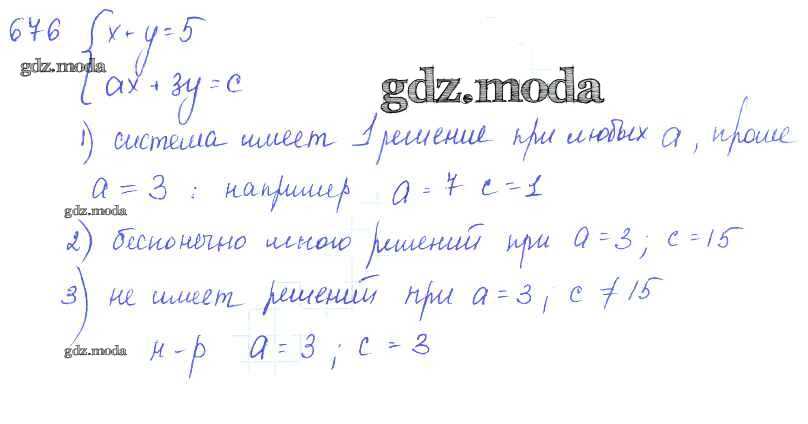 676 { x + y = 5
gdz.moda
ax + 3y = c
gdz.moda
1) система имеет 1 решение при любых a, кроме
a = 3 : например a = 7 c = 1
gdz.moda
2) бесконечно много решений при a = 3; c = 15
3) не имеет решений при a = 3; c ≠ 15
gdz.moda
н-р a = 3; c = 3